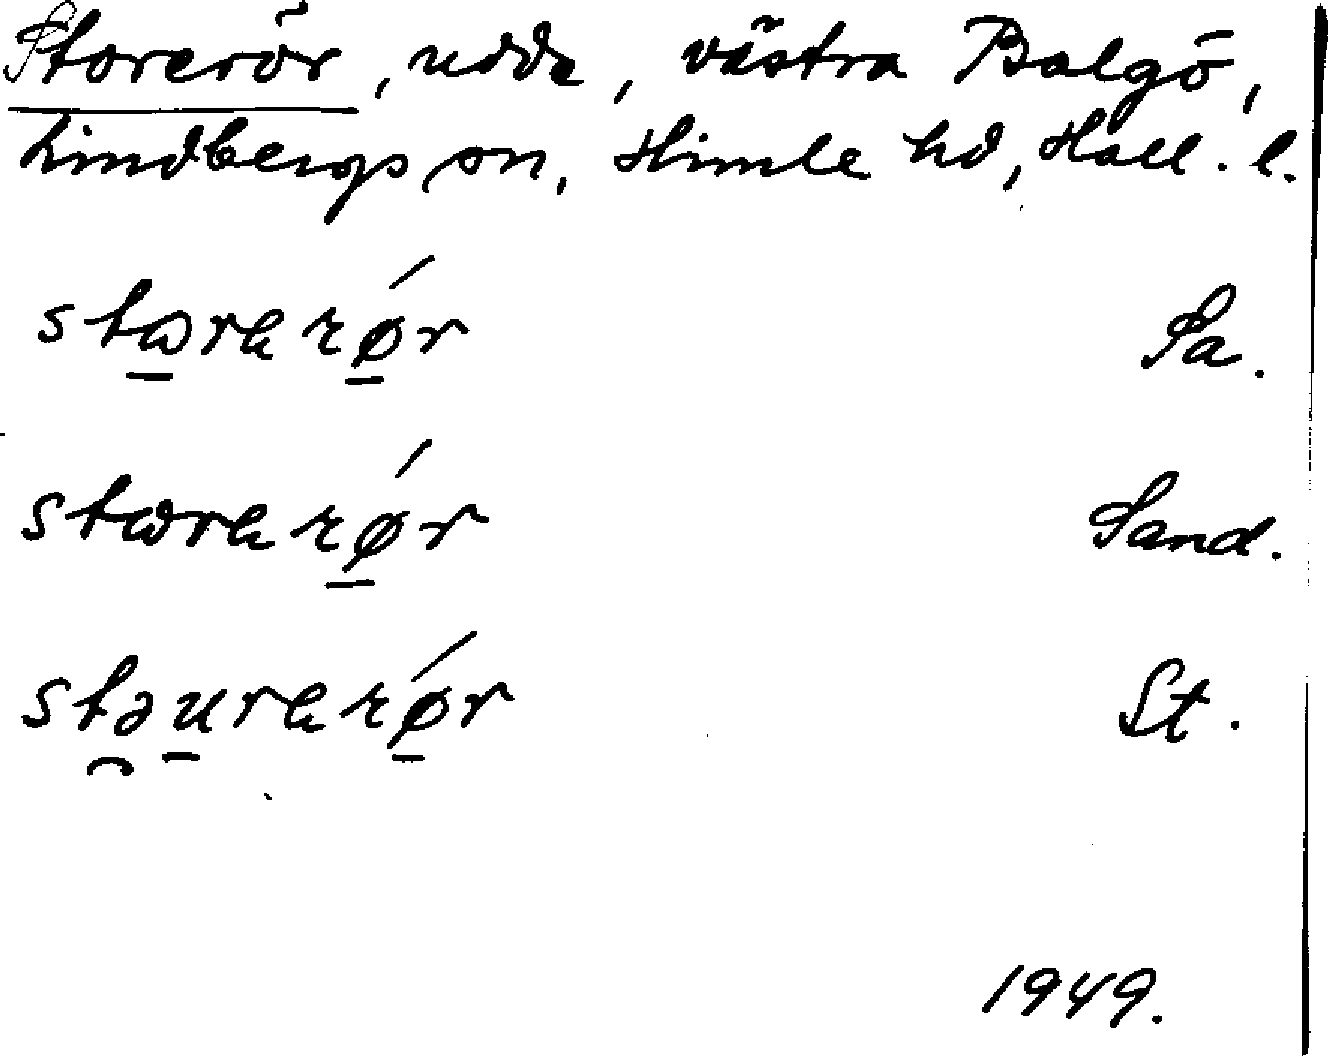 Storerör, udde, västra Balgö,
Lindbergs sn, Himle hd, Hall. l.
stωrarǿr Sa.
stωrarǿr Sand.
stəurarǿr St.
1949.